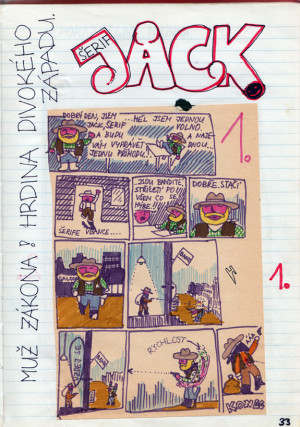 ŠERIF
JACK.
MUŽ ZÁKONA? HRDINA DIVOKÉHO
ZÁPADU..
DOBRÝ DEN, JSEM
JACK, ŠERIF
A BUDU
VÁM VYPRAVĚT
JEDNU PŘÍHODU..!
...MĚL JSEM JEDNOU
VOLNO
A NAJE-
DNOU...
1.
ŠERIFE
...JSOU BANDITÉ,
STŘÍLEJÍ PO
VŠEM CO SE
HÝBE!
DOBŘE, STAČÍ
BANK
RYCHLOST
1.
33